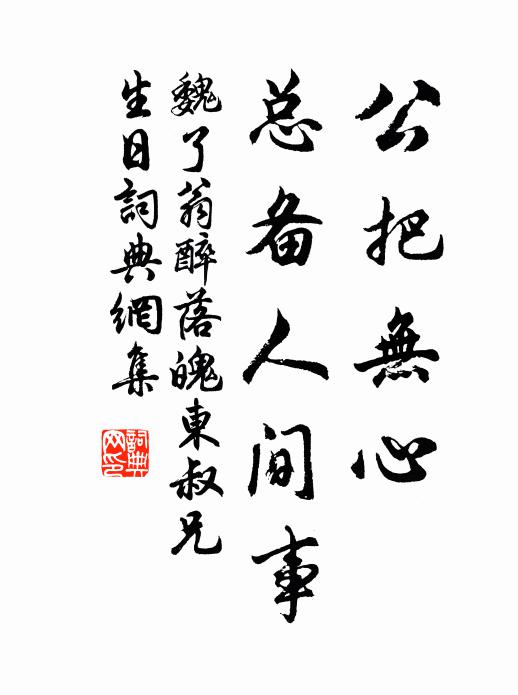 公把無心
总备人间事
魏了翁醉落魄東叔兄
生日詞典網集
詞典
网印